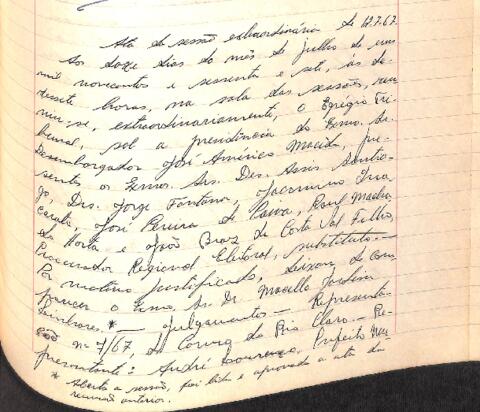 Ata da sessão extraordinária de 12.7.67.
Aos doze dias do mês de julho de um
mil novecentos e sessenta e sete, às de-
zessete horas, na sala das sessões, reu
niu-se, extraordinariamente, o Egrégio Tri-
bunal, sob a presidência do Exmo. Sr.
Desembargador José Américo Macedo, pre-
sentes os Exmos. Srs. Des. Assis Santia-
go, Drs. Jorge Fontana, Jacomino Ina-
carato, José Pereira de Paiva, Raul Macha
do Horta e João Braz da Costa Val Filho,
Procurador Regional Eleitoral, substituto.
Por motivo justificado, deixou de com
parecer o Exmo. Sr. Dr. Marcello Jardim
Linhares. * — Julgamentos — Representa-
ção nº 7/67, de Carmo do Rio Claro. — Re-
presentante: André Lourenço, Prefeito Mu
* Aberta a sessão, foi lida e aprovada a ata da
reunião anterior.